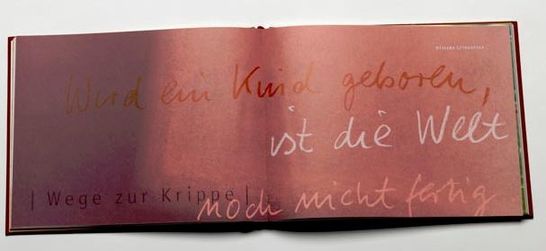 Wird ein Kind geboren,
ist die Welt
| Wege zur Krippe |
noch nicht fertig